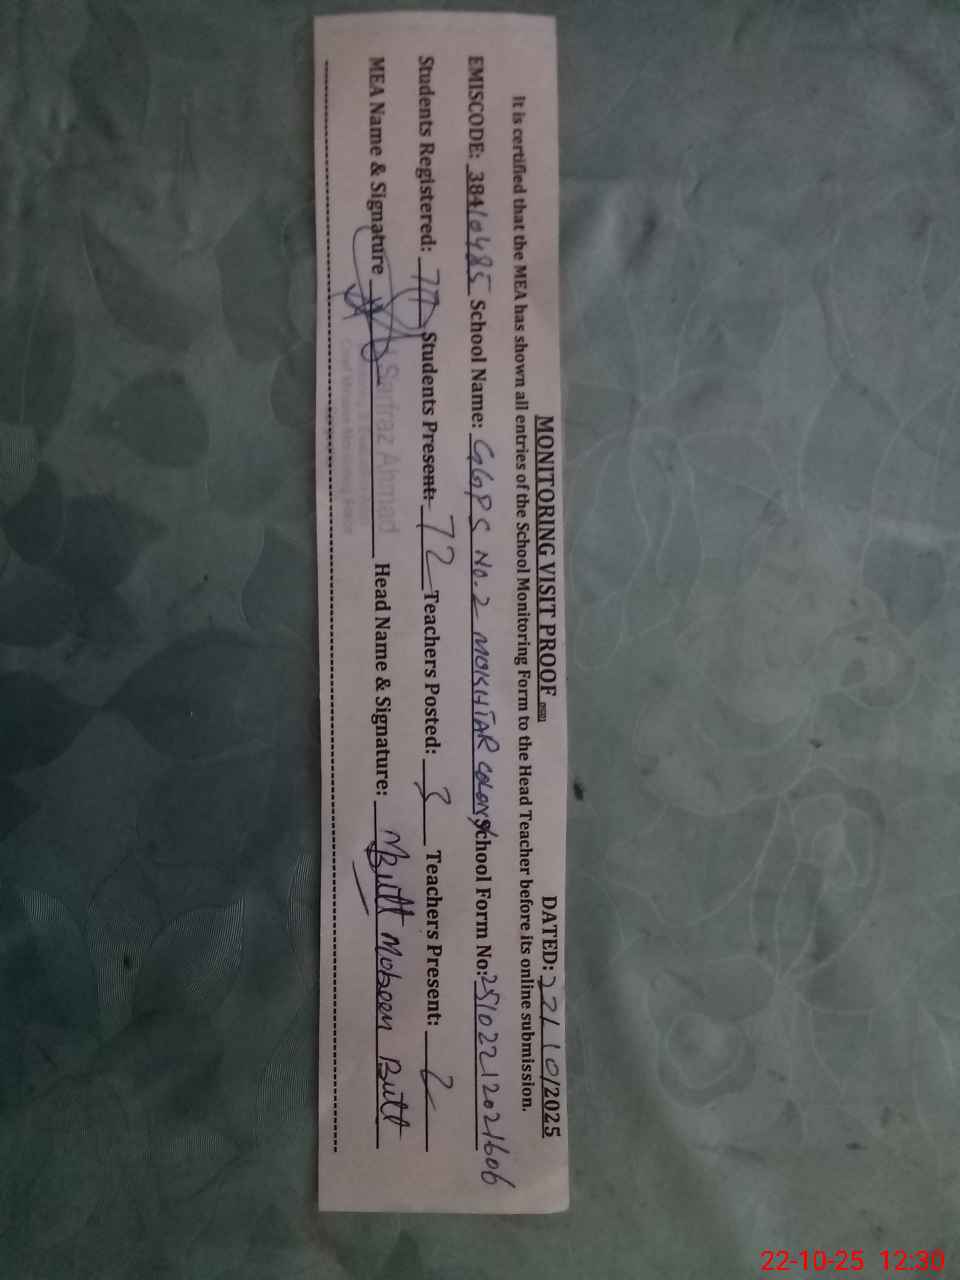 MONITORING VISIT PROOF DATED: 22/10/2025
It is certified that the MEA has shown all entries of the School Monitoring Form to the Head Teacher before its online submission.
EMISCODE: 38410485 School Name: GGPS No.2 MOKHTAR COLONY School Form No: 25102212021606
Students Registered: Students Present: 72 Teachers Posted: 3 Teachers Present: 2
MEA Name & Signature Sarfraz Ahmad Head Name & Signature: MButt Mobeen Butt
22-10-25 12:30